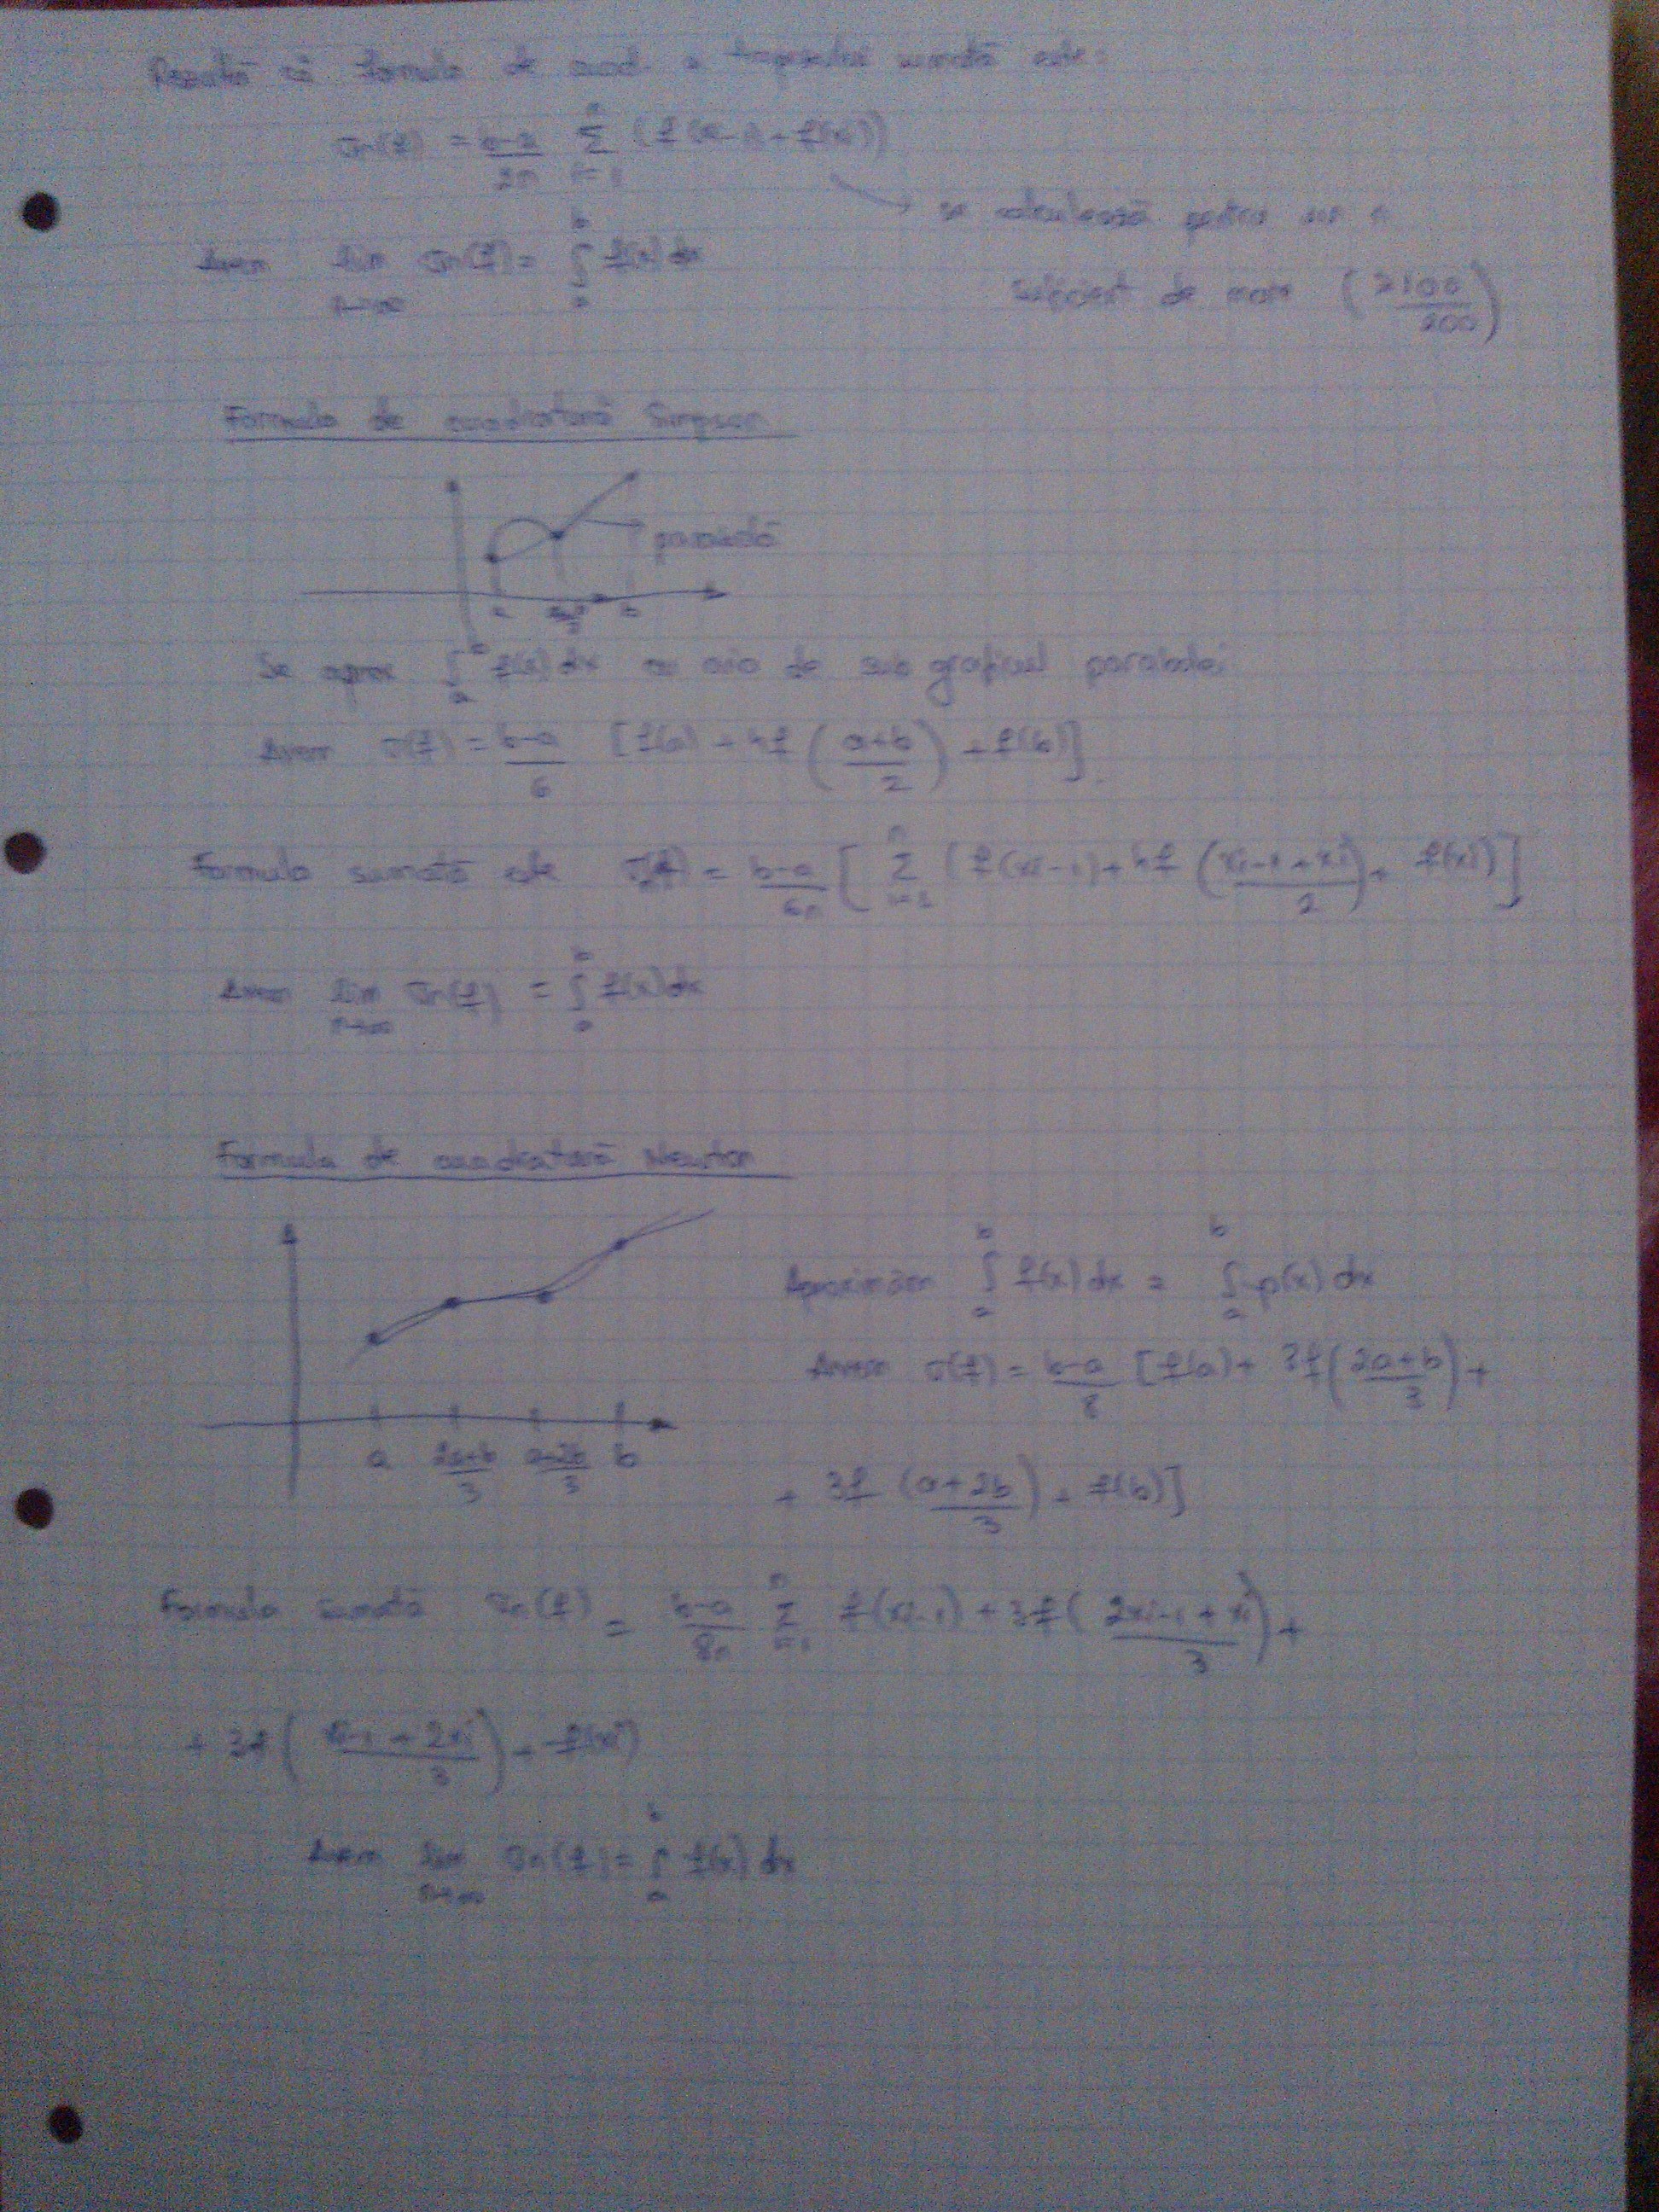 Rezultă că formula de cuad. a trapezului sumată este:
σn(f) = b-a/2n Σ i=1 n (f(xi-1) + f(xi))
→ se calculează pentru un n
Avem lim n→∞ σn(f) = ∫ a b f(x) dx
suficient de mare (≥100/200)
Formula de cuadratură Simpson
parabolă
a a+b/2 b
Se aprox ∫ a b f(x) dx cu aria de sub graficul parabolei
Avem σ(f) = b-a/6 [f(a) + 4f(a+b/2) + f(b)].
Formula sumată este σn(f) = b-a/6n [Σ i=1 n (f(xi-1) + 4f(xi-1+xi/2) + f(xi)]
Avem lim n→∞ σn(f) = ∫ a b f(x) dx
Formula de cuadratură Newton
Aproximăm ∫ a b f(x) dx = ∫ a b p(x) dx
Avem σ(f) = b-a/8 [f(a) + 3f(2a+b/3) +
a 2a+b/3 a+2b/3 b
+ 3f(a+2b/3) + f(b)]
Formula sumată σn(f) = b-a/8n Σ i=1 n f(xi-1) + 3f(2xi-1+xi/3) +
+ 3f(xi-1+2xi/3) + f(xi)
Avem lim n→∞ σn(f) = ∫ a b f(x) dx